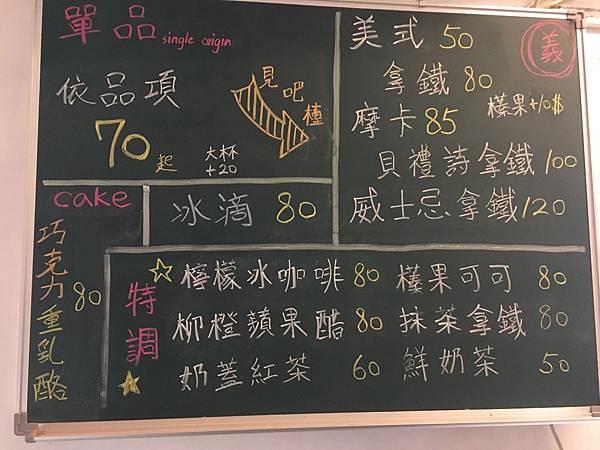 單品 single origin
依品項
70起
大杯
+20
見吧檯
義
美式 50
拿鐵 80
榛果+10$
摩卡 85
貝禮詩拿鐵 100
威士忌拿鐵 120
cake
巧克力重乳酪 80
冰滴 80
特調
檸檬冰咖啡 80
榛果可可 80
柳橙蘋果醋 80
抹茶拿鐵 80
奶蓋紅茶 60
鮮奶茶 50